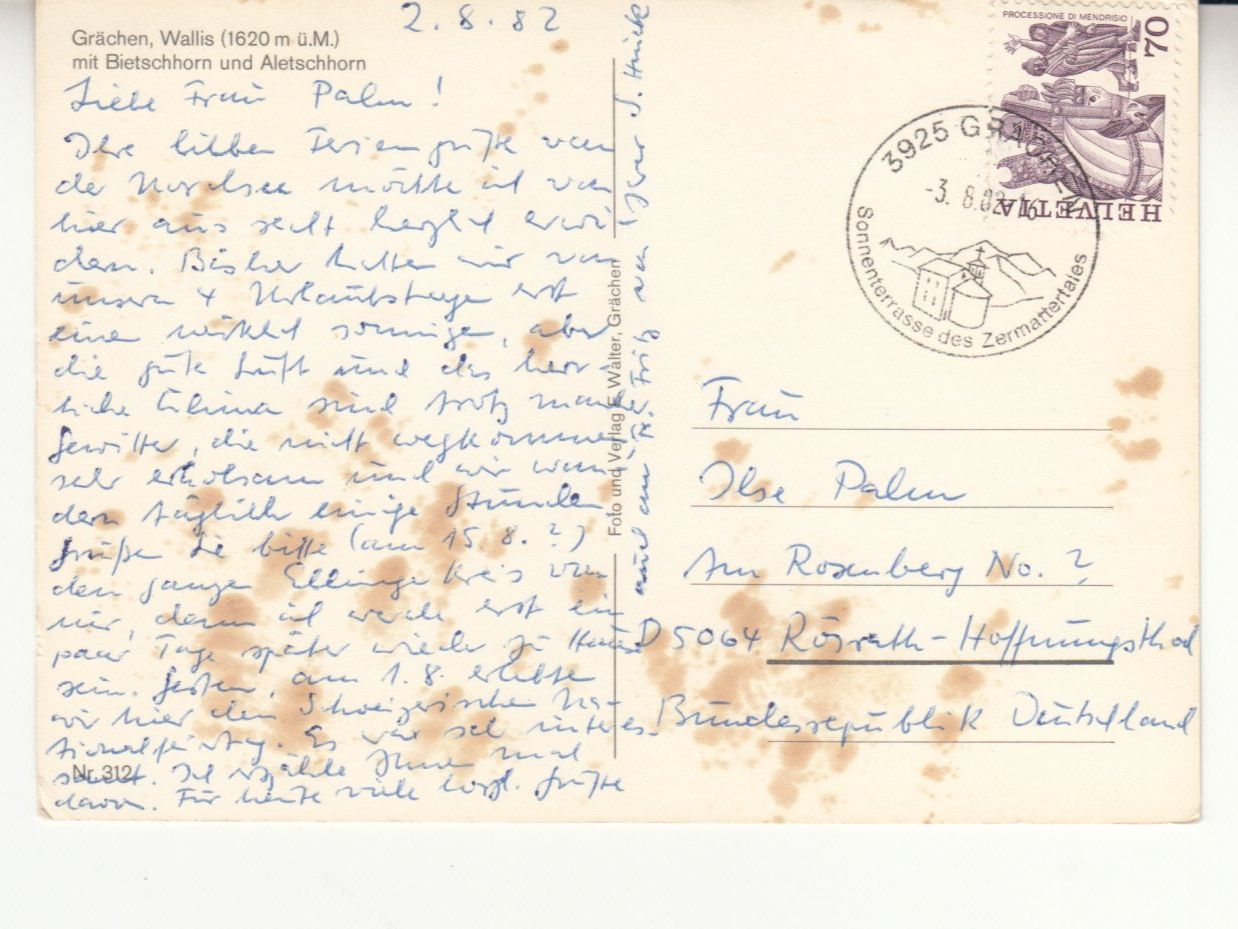 2.8.82
Grächen, Wallis (1620 m ü.M.)
mit Bietschhorn und Aletschhorn
Liebe Frau Palm!
Ihre lieben Feriengrüße von
der Nordsee möchte ich von
hier aus recht herzlich erwi-
dern. Bisher hatten wir von
unsern 4 Urlaubstagen erst
einen wirklich sonnigen, aber
die gute Luft und das herr-
liche Clima sind trotz manch
Gewitter, die nicht wegkommen
sehr erholsam und wir wan-
dern täglich einige Stunden
Grüßen Sie bitte (am 15.8.?)
den ganzen Kreis von
mir, denn ich werde erst ein
paar Tage später wieder zu Hause
sein. Gestern, am 1.8. erlebten
wir hier den Schweizerischen Na-
tionalfeiertag. Es war sehr interes-
sant. Ich erzähle Ihnen mal
davon. Für heute viele herzl. Grüße
Nr. 312
auch an Fr. Fritz von Ihrer
Foto und Verlag E. Walter, Grächen
PROCESSIONE DI MENDRISIO
70
HELVETIA
3925 GRÄCHEN
-3. 8.82
Sonnenterrasse des Zermattertales
Frau
Ilse Palm
Am Rosenberg No. ?
D 5064 Rösrath-Hoffnungsthal
Bundesrepublik Deutschland